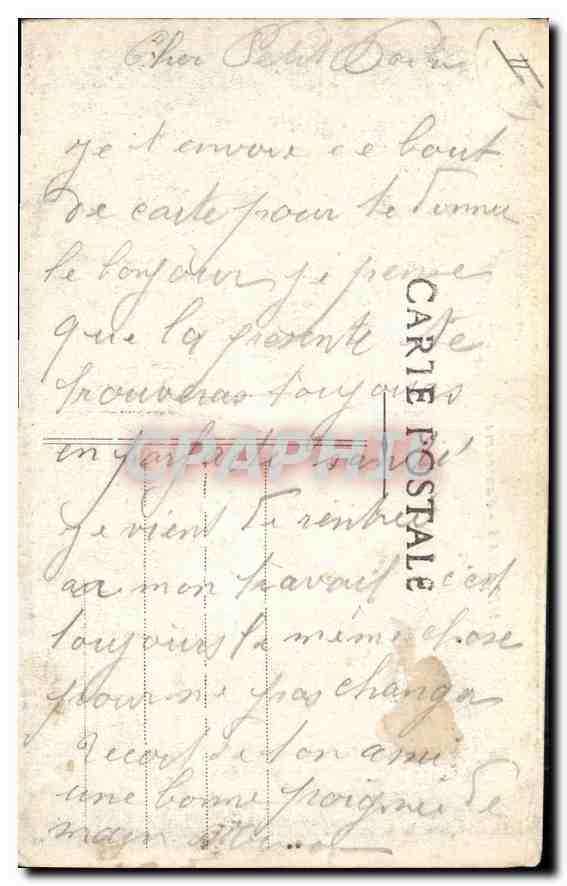 Cher Petit
II
je t envoie ce bout
de carte pour te donner
le bonjour je pense
que la presente te
trouveras toujours
en parfaite santé
je viens de rentrer
aa mon travail c'est
toujours la même chose
pour ne pas changer
de ton ami
une bonne poignée de
main
CARTE POSTALE
CPAPHIL